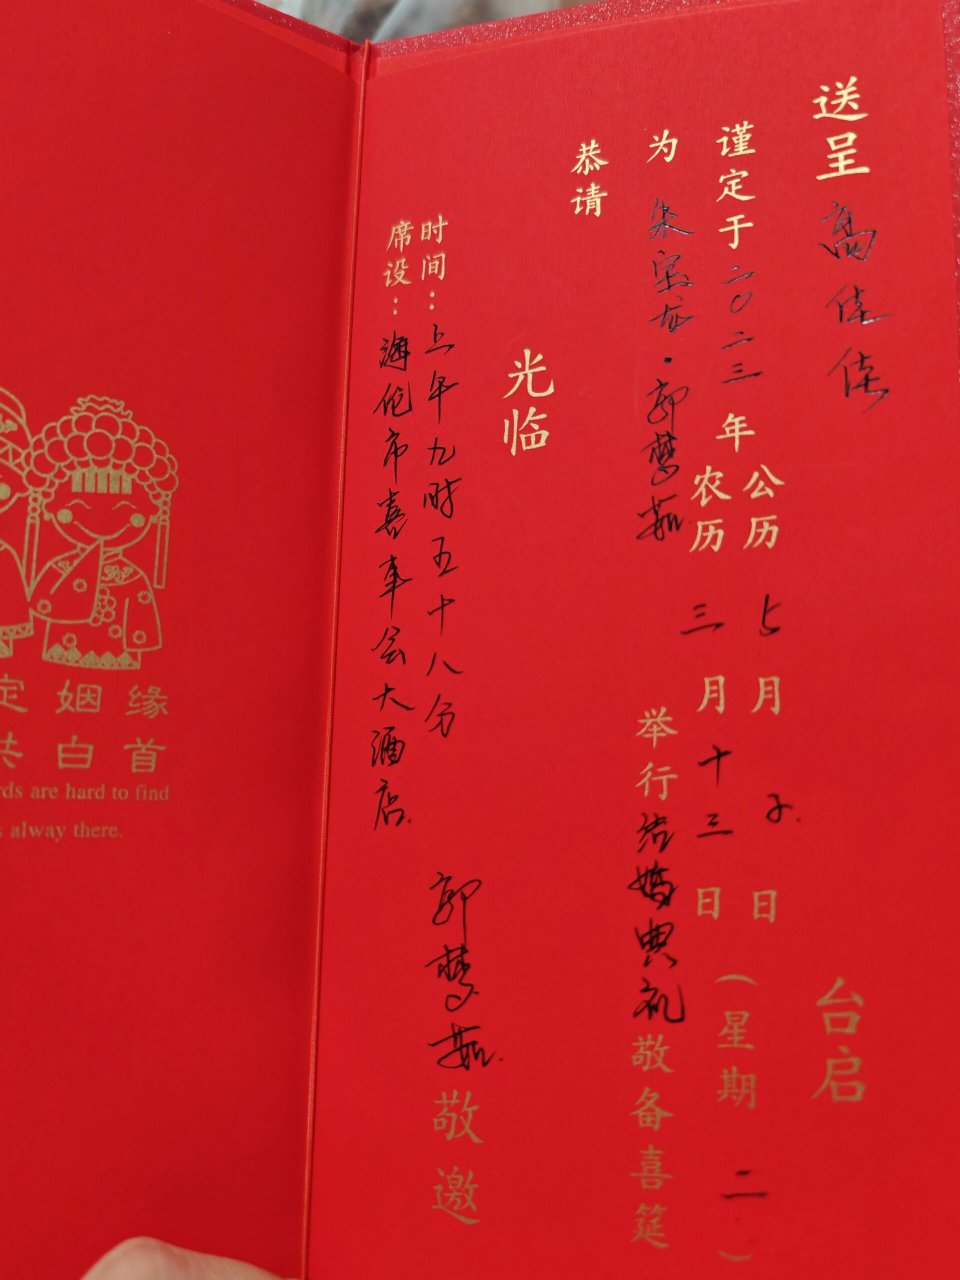 送呈 高佳佳 台启
谨定于二〇二三年
公历 五月 2. 日
农历 三月十三日
(星期二)
为 朱宗龙·郭梦茹 举行结婚典礼敬备喜筵
恭请
光临
时间：上午九时五十八分
席设：海伦市喜事会大酒店.
郭梦茹.敬邀
定姻缘
共白首
are hard to find
alway there.